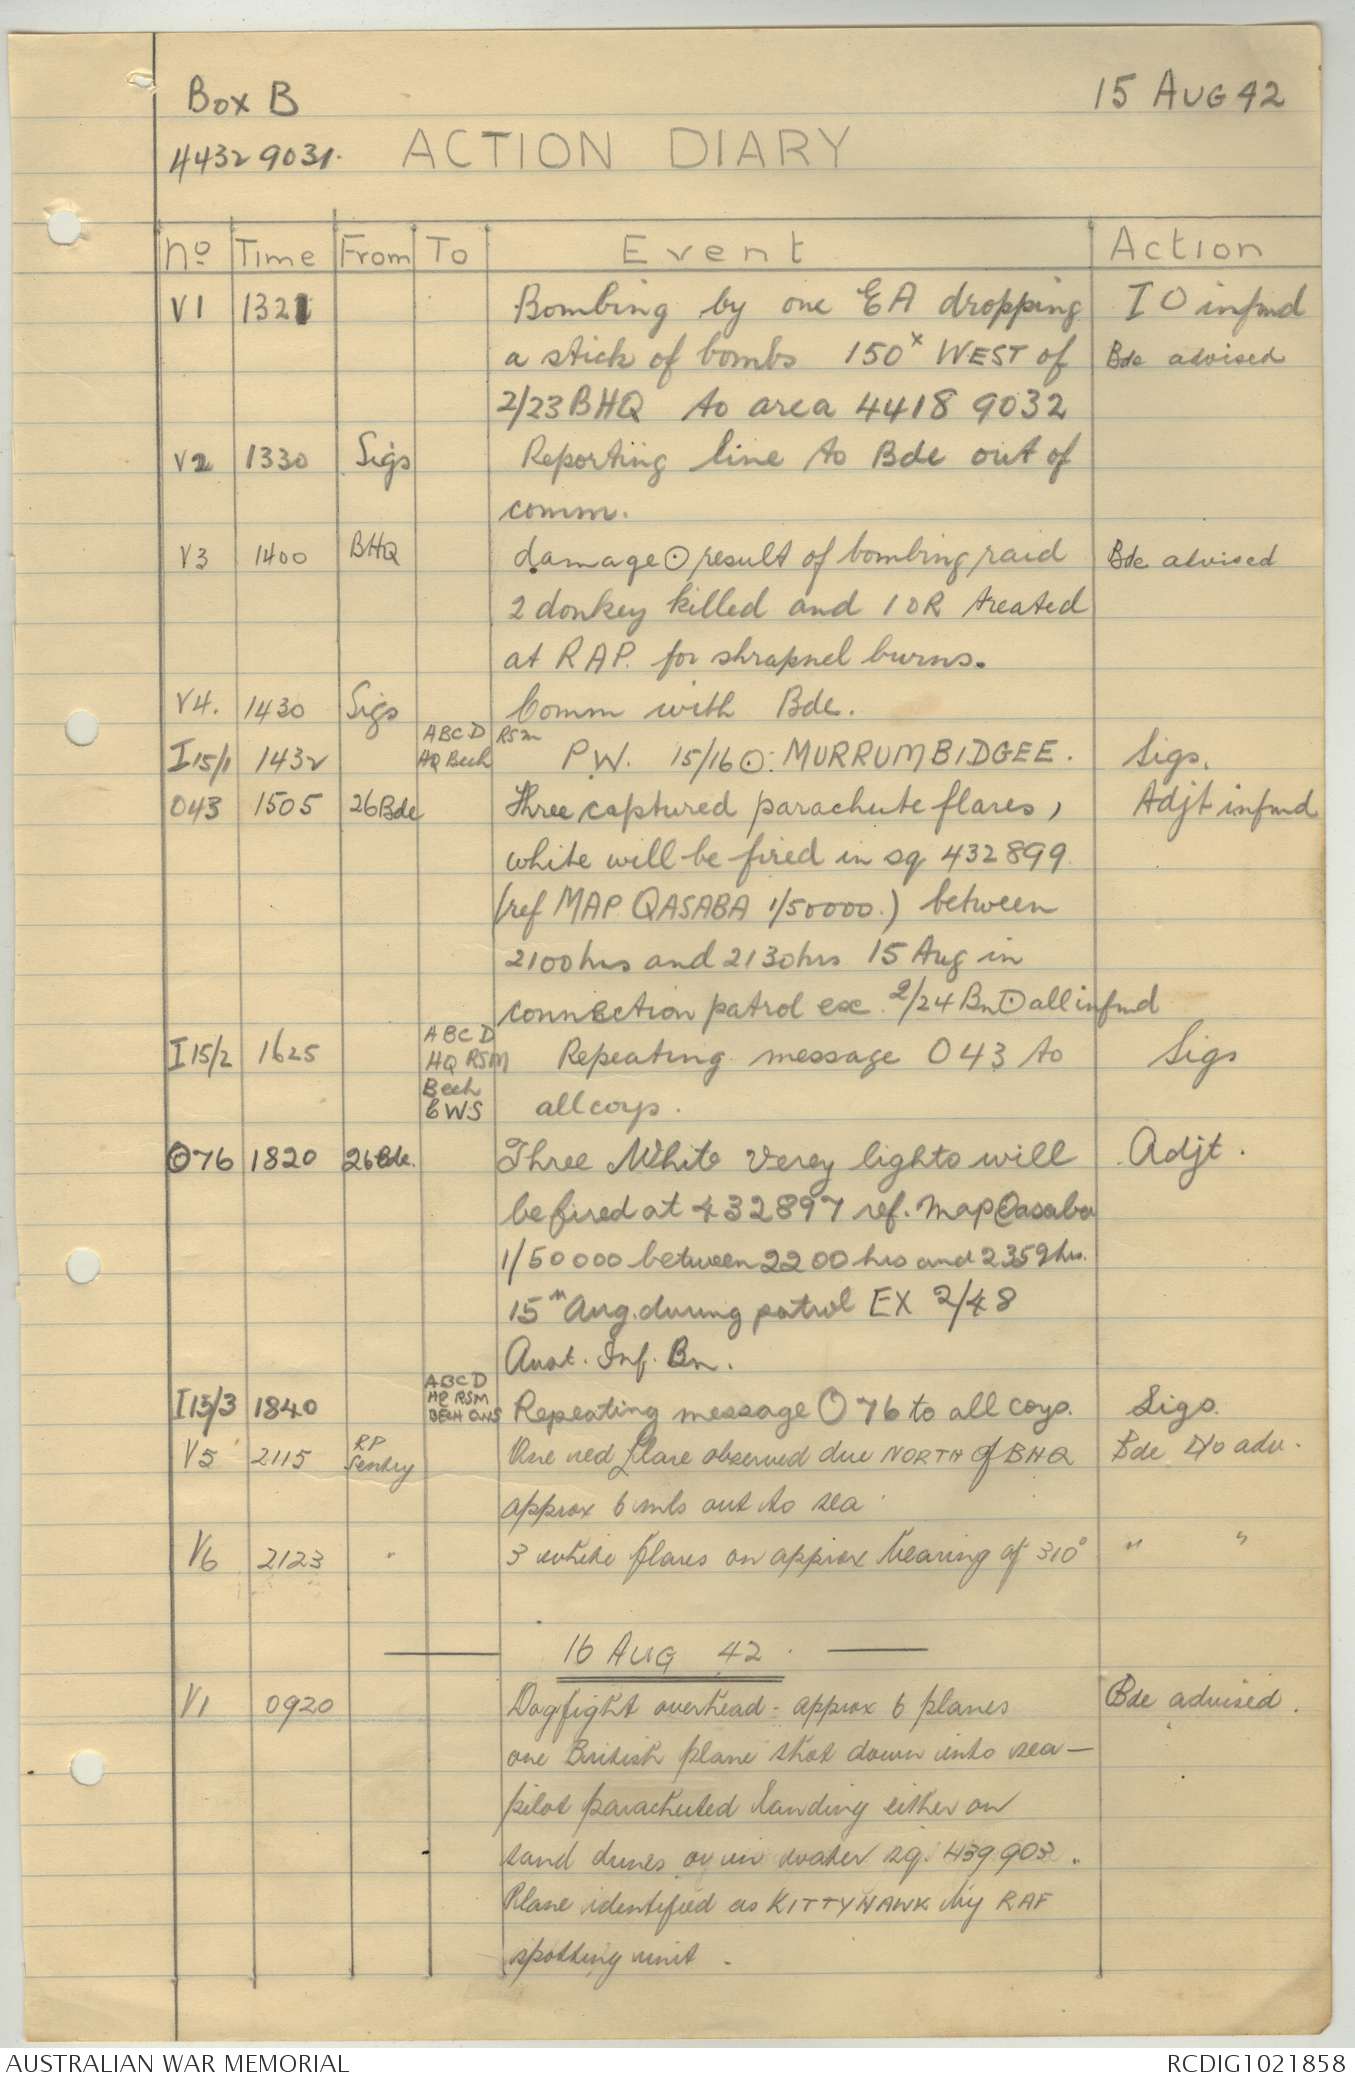 Box B
15 AUG 42
4432 9031.
ACTION DIARY
No Time From To Event Action
V1 1321 Bombing by one EA dropping I O infmd
a stick of bombs 150x WEST of Bde advised
2/23 BHQ to area 4418 9032
V2 1330 Sigs Reporting line to Bde out of
comm.
V3 1400 BHQ damage ⊙ result of bombing raid Bde advised
2 donkey killed and 1 OR treated
at RAP. for shrapnel burns.
V4. 1430 Sigs Comm with Bde.
ABCD RSM
I 15/1 1432 HQ Bech P.W. 15/16 ⊙: MURRUMBIDGEE. Sigs.
O43 1505 26 Bde Three captured parachute flares, Adjt infmd
white will be fired in sq 432899
(ref MAP QASABA 1/50000.) between
2100 hrs and 2130 hrs 15 Aug in
connection patrol ex 2/24 Bn ⊙ all infmd
ABCD
I 15/2 1625 HQ RSM Repeating message O43 to Sigs
Bech
CWS all coys.
O76 1820 26 Bde. Three White Verey lights will Adjt.
be fired at 432897 ref. Map Qasaba
1/50000 between 2200 hrs and 2359 hrs.
15th Aug. during patrol EX 2/48
Aust. Inf. Bn.
ABCD
I 15/3 1840 HQ RSM BECH CWS Repeating message O76 to all coys. Sigs.
V5 2115 RP Sentry One red flare observed due NORTH of BHQ Bde I/O adv.
approx 6 mls out to sea
V6 2123 " 3 white flares on approx bearing of 310° " "
16 AUG 42
V1 0920 Dogfight overhead - approx 6 planes Bde advised.
one British plane shot down into sea —
pilot parachuted landing either on
sand dunes or in water sq. 439903.
Plane identified as KITTYHAWK by RAF
spotting unit.
AUSTRALIAN WAR MEMORIAL
RCDIG1021858